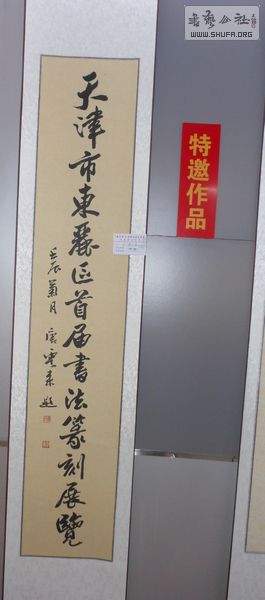 天津市東麗區首届書法篆刻展覽
壬辰菊月
特邀作品
書藝公社
WWW.SHUFA.ORG